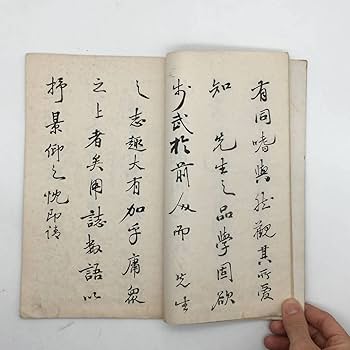 有同嗜與 然觀其所愛
知 先生之品學固欲
步武於前人而 先生
之志趣大有加乎庸眾
之上者矣用誌數語以
抒景仰之忱即請